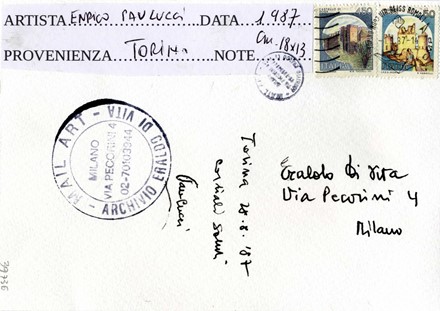 ARTISTA ENRICO PAULUCCI DATA 1987
PROVENIENZA TORINO NOTE cm. 18x13
MAIL ART - ARCHIVIO ERALDO DI VITA -
MILANO
VIA PECORINI 4
02-70103944
Torino 28.8.'87
cordiali saluti
Paulucci
Eraldo Di Vita
Via Pecorini 4
Milano
39736